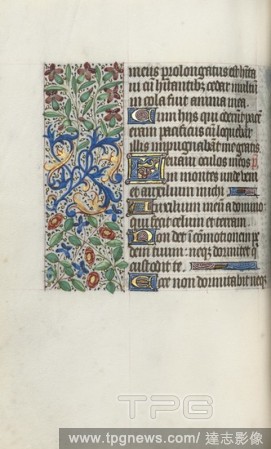 meus prolongatus est hita
in cola fuit anima mea.
Cum hijs qui oderūt pacē
eram pacificus cū loquebar
illis impugnabāt me gratis
Levavi oculos meos
in montes unde veni
et auxilium michi
Auxilium meū a domino
qui fecit celum et terram.
Non det ī cōmotionem pe
dem tuum: neqz dormitet q
custodit te.
Ecce non dormitabit neqz
TPG
www.tpgnews.com/ 達志影像